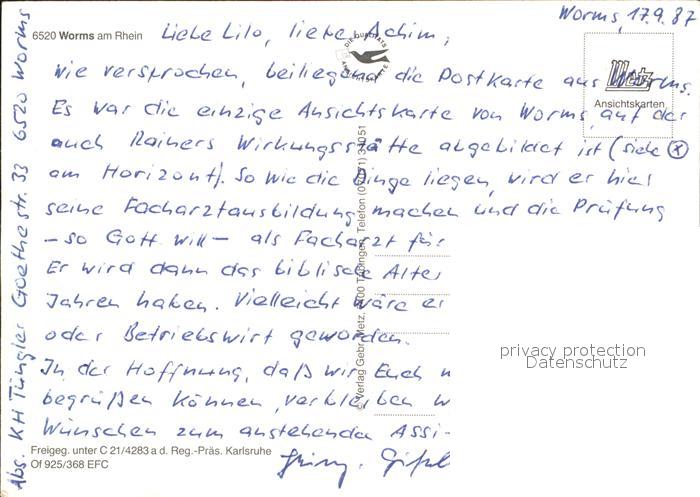 Worms, 17.9.87
6520 Worms am Rhein
Liebe Lilo, lieber Achim,
wie versprochen, beiliegend die Postkarte aus Worms.
Es war die einzige Ansichtskarte von Worms, auf der
auch Rainers Wirkungsstätte abgebildet ist (siehe ⓧ
am Horizont). So wie die Dinge liegen, wird er hier
seine Facharztausbildung machen und die Prüfung
- so Gott will - als Facharzt für
Er wird dann das biblische Alter
Jahren haben. Vielleicht wäre er
oder Betriebswirt geworden.
In der Hoffnung, daß wir Euch
begrüßen können, verbleiben
Wünschen zum anstehenden Assi-
Abs. KH Tüngler Goethestr. 33 6520 Worms
Metz
Ansichtskarten
© Verlag Gebr. Metz, Tübingen, Telefon
privacy protection
Datenschutz
Freigeg. unter C 21/4283 a d. Reg.-Präs. Karlsruhe
Of 925/368 EFC